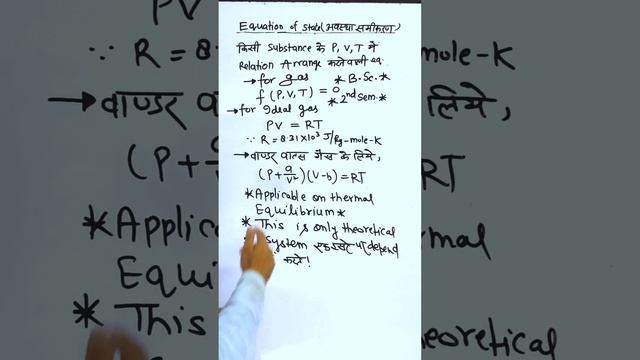 Equation of state (अवस्था समीकरण)
किसी Substance के P, V, T में
Relation Arrange करने वाली eq.
→ for gas *B.Sc.*
f (P, V, T) = 0 *2nd Sem.*
→ for Ideal gas
PV = RT
∵ R = 8.31×10³ J/Kg-mole-K
→ वाण्डर वाल्स गैस के लिये,
(P + a/V²)(V-b) = RT
*Applicable on thermal
Equilibrium*
* This is only theoretical
System एक दूसरे पर depend
करे!